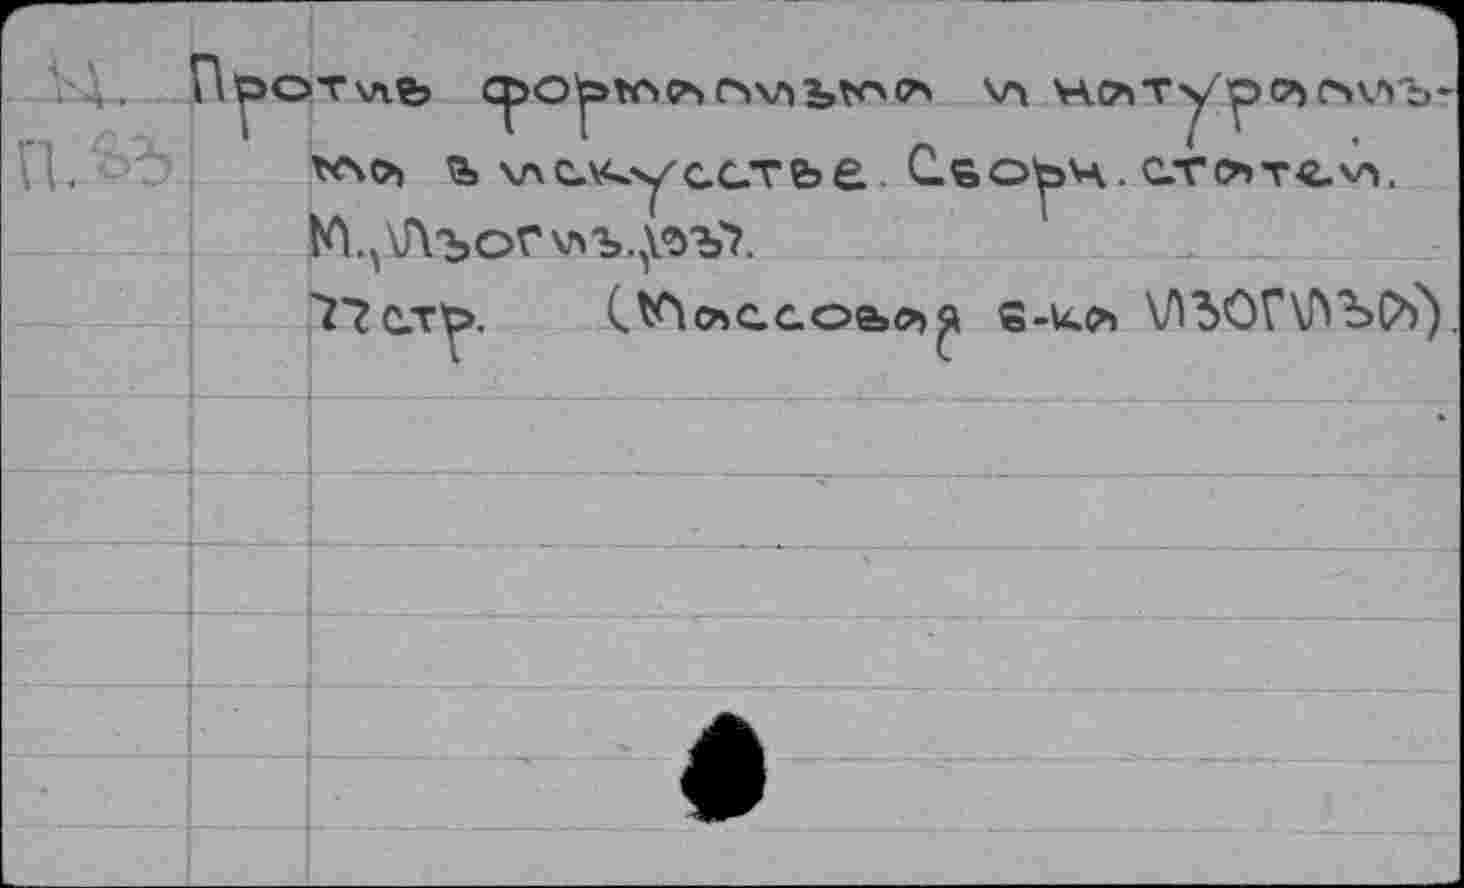 Ц. Против формализма и натурализ-
П.83 ма в искусстве. Сборн. статей.
М., Изогиз.,1937.
77 стр. (Массовая б-ка Изогиза).